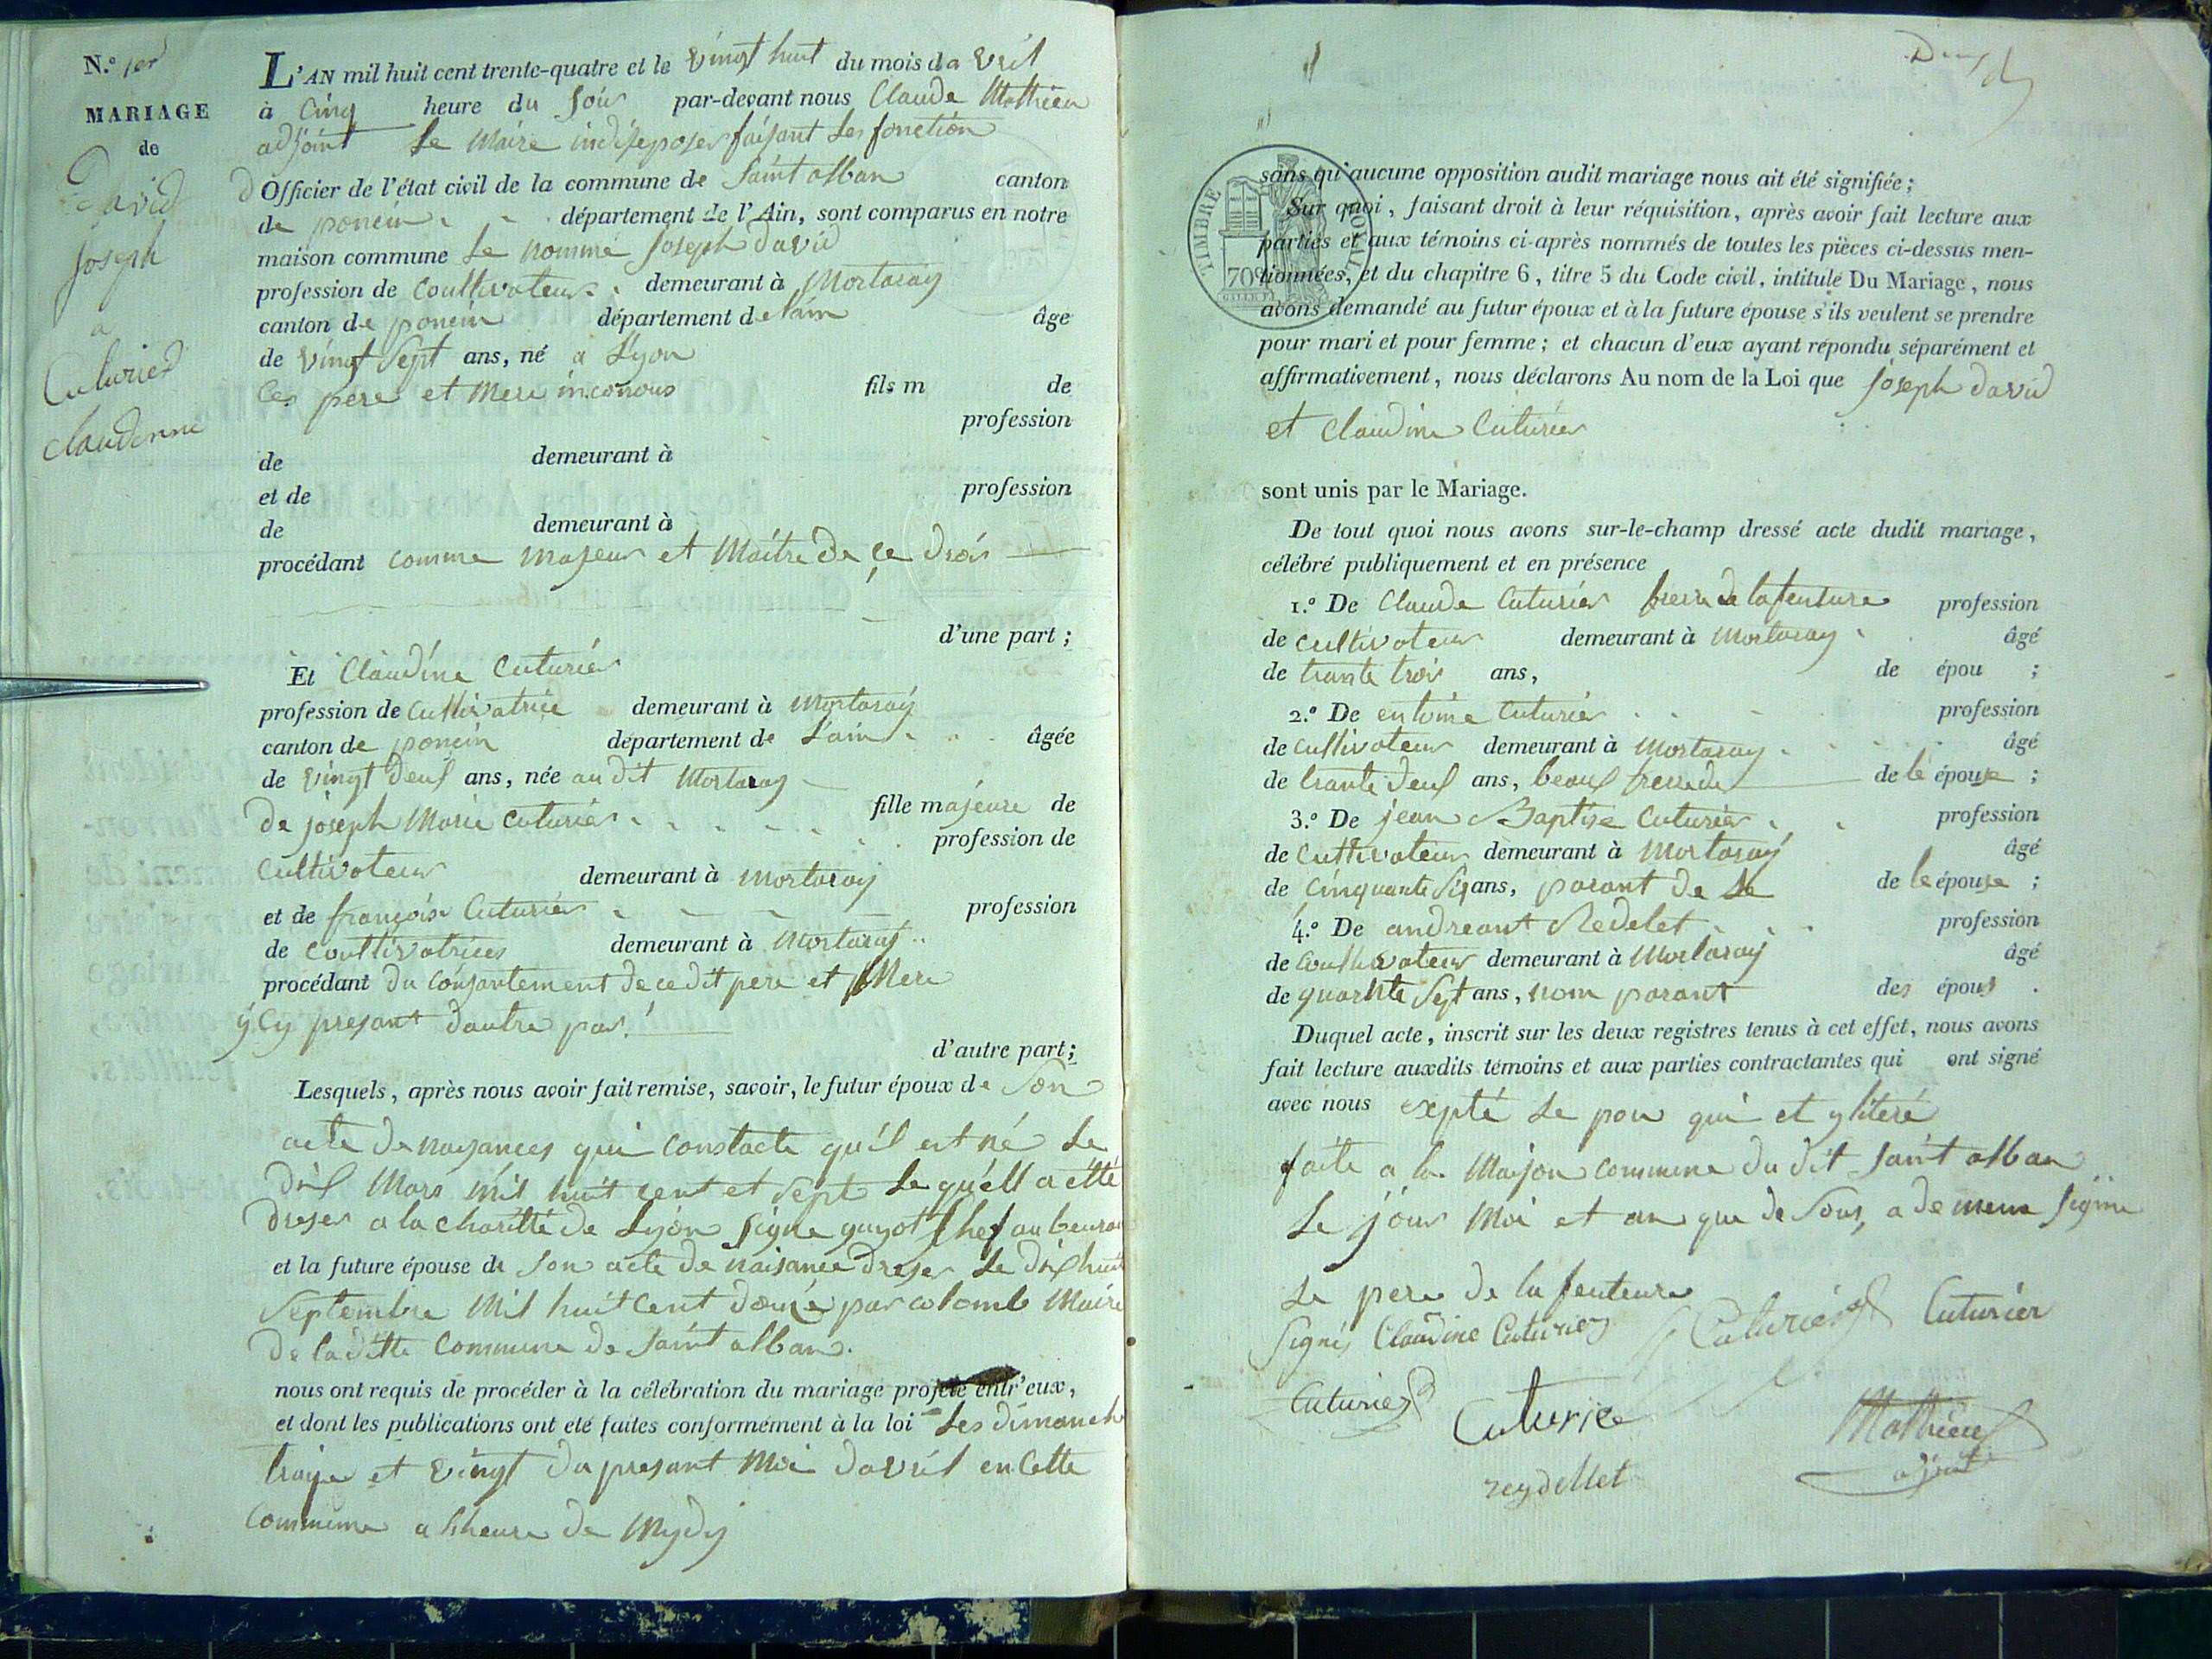 N.º 1er
MARIAGE
de
David
Joseph
a
Cuturier
claudinne
L'AN mil huit cent trente-quatre et le vingt huit du mois da vril
à Cinq heure du soir par-devant nous Claude Mathieu
adjoint le Maire indisposer faisant les fonction
d Officier de l'état civil de la commune de Saint alban canton
de poncin département de l'Ain, sont comparus en notre
maison commune Le nommé Joseph david
profession de Coultivateur demeurant à Mortaray
canton de poncin département de lain âge
de vingt Sept ans, né a Lyon
Ces pere et Mere inconous fils m de
profession
de demeurant à
et de profession
de demeurant à
procédant comme majeur et Maitre de ce drois
d'une part ;
Et Claudine Cuturier
profession de Cultivatrice demeurant à Mortaray
canton de poncin département de L'ain âgée
de vingt deux ans, née au dit Mortaray
de joseph Marie Cuturier fille majeure de
profession de
Cultivateur demeurant à Mortaray
et de françoise Cuturier profession
de coultivatrices demeurant à Mortaray
procédant du consantement de ce dit pere et Mere
y Cy presant dautre par
d'autre part ;
Lesquels, après nous avoir fait remise, savoir, le futur époux de Son
acte de naysances qui constacte qu'il est né Le
dix Mars mil huit cent et Sept Le quell a étté
dreser a la charitté de Lyon signe guyot Chef au beurau
et la future épouse de Son acte de naisance dreser Le dix huit
Septembre Mil huit Cent douze par colomb Maire
de laditte Commune de Saint alban.
nous ont requis de procéder à la célébration du mariage projeté entr'eux,
et dont les publications ont été faites conformément à la loi Les dimanch
traize et vingt du presant Moi davril en Cette
Commune a lheure de Mydy
sans qu'aucune opposition audit mariage nous ait été signifiée ;
Sur quoi, faisant droit à leur réquisition, après avoir fait lecture aux
parties et aux témoins ci-après nommés de toutes les pièces ci-dessus men-
tionnées, et du chapitre 6, titre 5 du Code civil, intitulé Du Mariage, nous
avons demandé au futur époux et à la future épouse s'ils veulent se prendre
pour mari et pour femme ; et chacun d'eux ayant répondu séparément et
affirmativement, nous déclarons Au nom de la Loi que Joseph david
et Claudine Cuturier
sont unis par le Mariage.
De tout quoi nous avons sur-le-champ dressé acte dudit mariage,
célébré publiquement et en présence
1.º De Claude Cuturier frere de la feuture profession
de cultivateur demeurant à Mortaray âgé
de trante trois ans, de épou ;
2.º De entoine Cuturier profession
de Cultivateur demeurant à Mortaray âgé
de trante deux ans, beaux frere de de le épouse ;
3.º De jean Baptise Cuturier profession
de Cultivateur demeurant à Mortaray âgé
de Cinquante Six ans, parant de La de le épouse ;
4.º De andreant Redelet profession
de Coultivateur demeurant à Mortaray âgé
de quarante Sept ans, nom parant des époux .
Duquel acte, inscrit sur les deux registres tenus à cet effet, nous avons
fait lecture auxdits témoins et aux parties contractantes qui ont signé
avec nous expté Le pou qui et ylitere
faite a la Maison commune du dit Saint alban
Le jour Moi et an que de Sous, a de meme Signé
Le pere de la feuteure
Signés Claudine Cuturier Cuturier Cuturier
Cuturier Cuturie Mathieu
adjoint
reydellet
TIMBRE ROYAL
70c